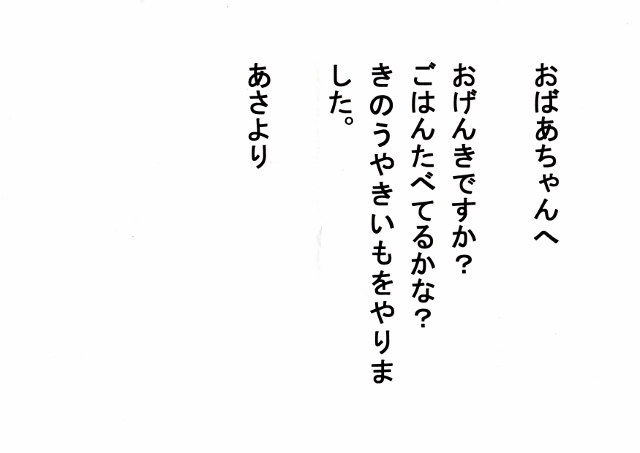 おばあちゃんへ
おげんきですか？
ごはんたべてるかな？
きのうやきいもをやりま
した。
あさより